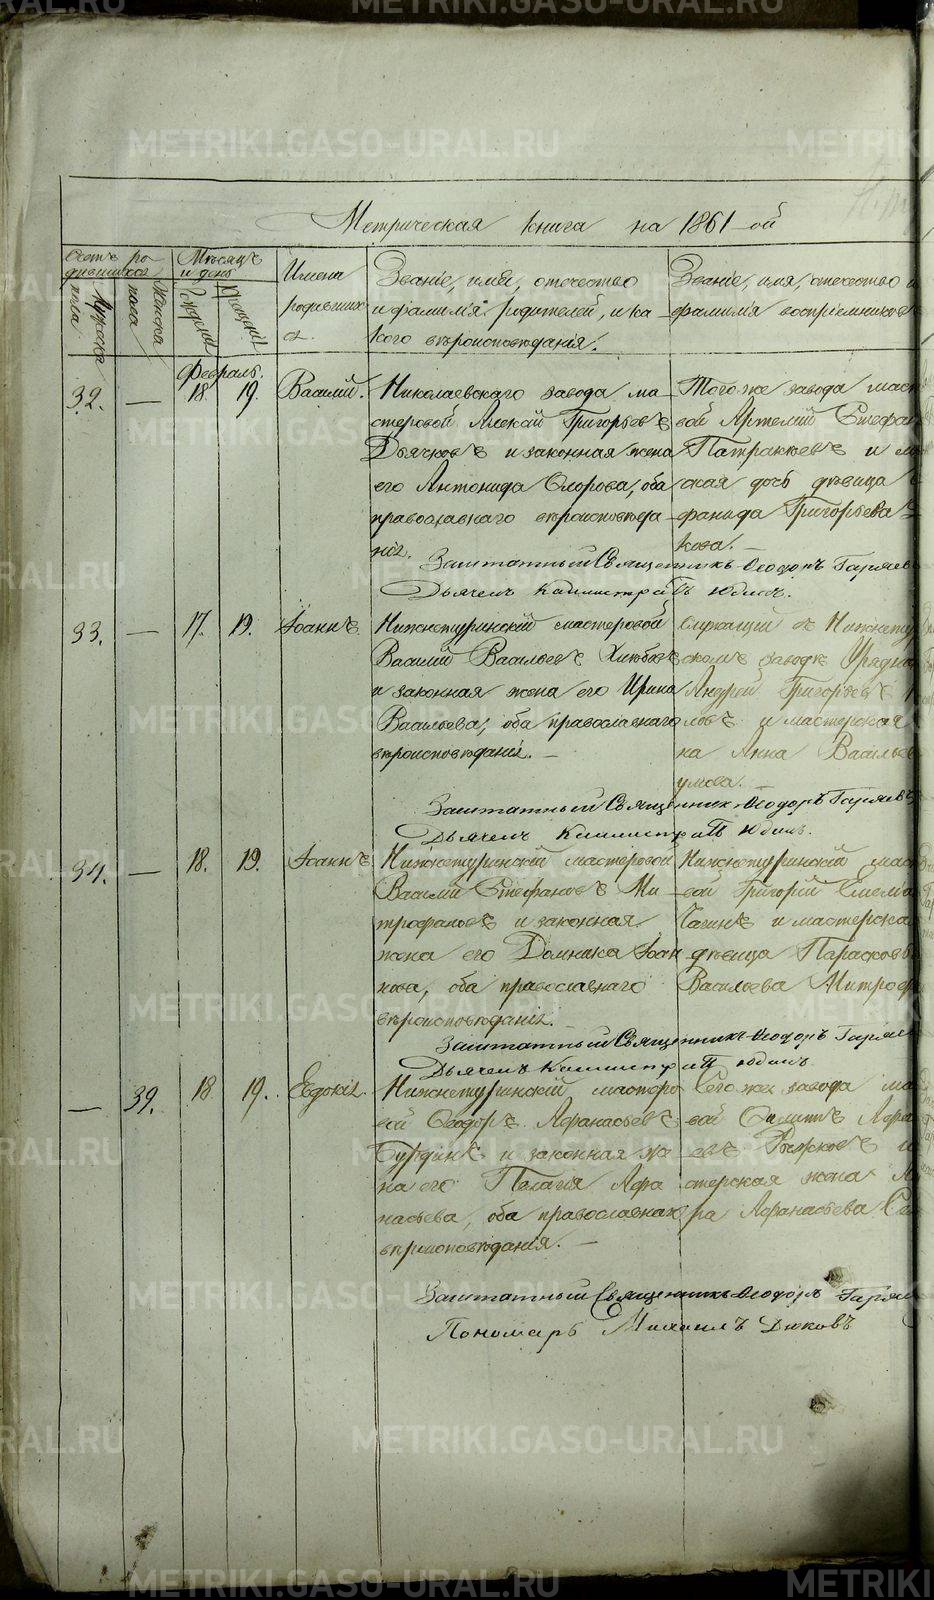 METRIKI.GASO-URAL.RU
Метрическая книга на 1861-ой
Счетъ ро-
дившихся
Мужеска
пола
Женска
пола
Мѣсяцъ
и день
Рожденія
Крещенія
Имена
родивших
ся.
Званіе, имя, отчество
и фамилія родителей, и ка-
кого вѣроисповѣданія.
Званіе, имя, отчество и
фамилія воспріемниковъ
Февраль.
32. — 18. 19. Василій.
Николаевскаго завода ма-
стеровой Алексѣй Григорьевъ
Дьячковъ и законная жена
его Антонида, оба
православнаго вѣроисповѣда-
нія.
Того же завода маст
вой Артемій Стефан
и ма
ская дочь дѣвица
фанида Григорьева
кова. —
Заштатный Священникъ Ѳеодоръ Гаряев
Дьячекъ Каллистратъ Юдинъ.
33. — 17. 19. Іоаннъ.
Нижнетуринскій мастеровой
Василій Васильевъ
и законная жена его Ирина
Васильева, оба православнаго
вѣроисповѣданія. —
Служащій въ Нижнету
скомъ заводѣ Урядн
Андрей Григорьевъ
ловъ и мастерская
на Анна Васильев
умова. —
Заштатный Священникъ Ѳеодоръ Гаряевъ
Дьячекъ Каллистратъ Юдинъ.
34. — 18. 19. Іоаннъ
Нижнетуринскій мастеровой
Василій Стефановъ Ми-
трофановъ и законная
жена его Домника Іоан
нова, оба православнаго
вѣроисповѣданія. —
Нижнетуринскій маст
вой Григорій
Чагинъ и мастерска
дѣвица Парасковь
Васильева Митроф
Заштатный Священникъ Ѳеодоръ Гаряев
Дьячекъ Каллистратъ Юдинъ
— 39. 18 19. Евдокія.
Нижнетуринскій мастеро
вой Ѳеодоръ Афанасьевъ
Бурдинъ и законная же
на его Пелагія Афа
насьева, оба православнаго
вѣроисповѣданія. —
Сего же завода ма
вой Филиппъ Афа
евъ Рыжковъ и
стерская жена
ра Афанасьева
Заштатный Священникъ Ѳеодоръ Гаряев
Пономарь Михаилъ Дюковъ